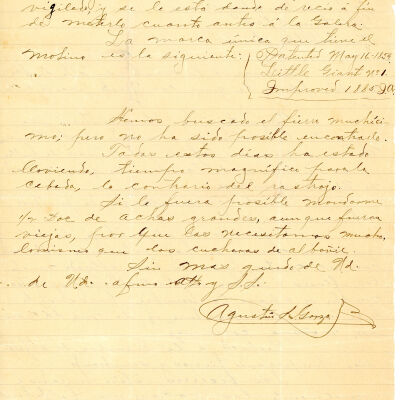 vigilado, y se le está dando de recio á fin
de meterlo cuanto antes á la Galera.
La marca única que tiene el
molino es la siguiente:
Patented May 16-1854
Little Giant No 1.
Improved 1885
Hemos buscado el fierro muchísi
mo; pero no ha sido posible encontrarlo.
Todos estos dias ha estado
lloviendo, tiempo magnifico para la
cebada, lo contrario del rastrojo.
Si le fuera posible mandarme
1/2 Doc de achas grandes, aunque fueran
viejas, por que las necesitamos mucho,
lo mismo que las cucharas de albañil.
Sin mas quedo de Ud.
de Ud. afmo atto y S.S.
Agustin L Garza